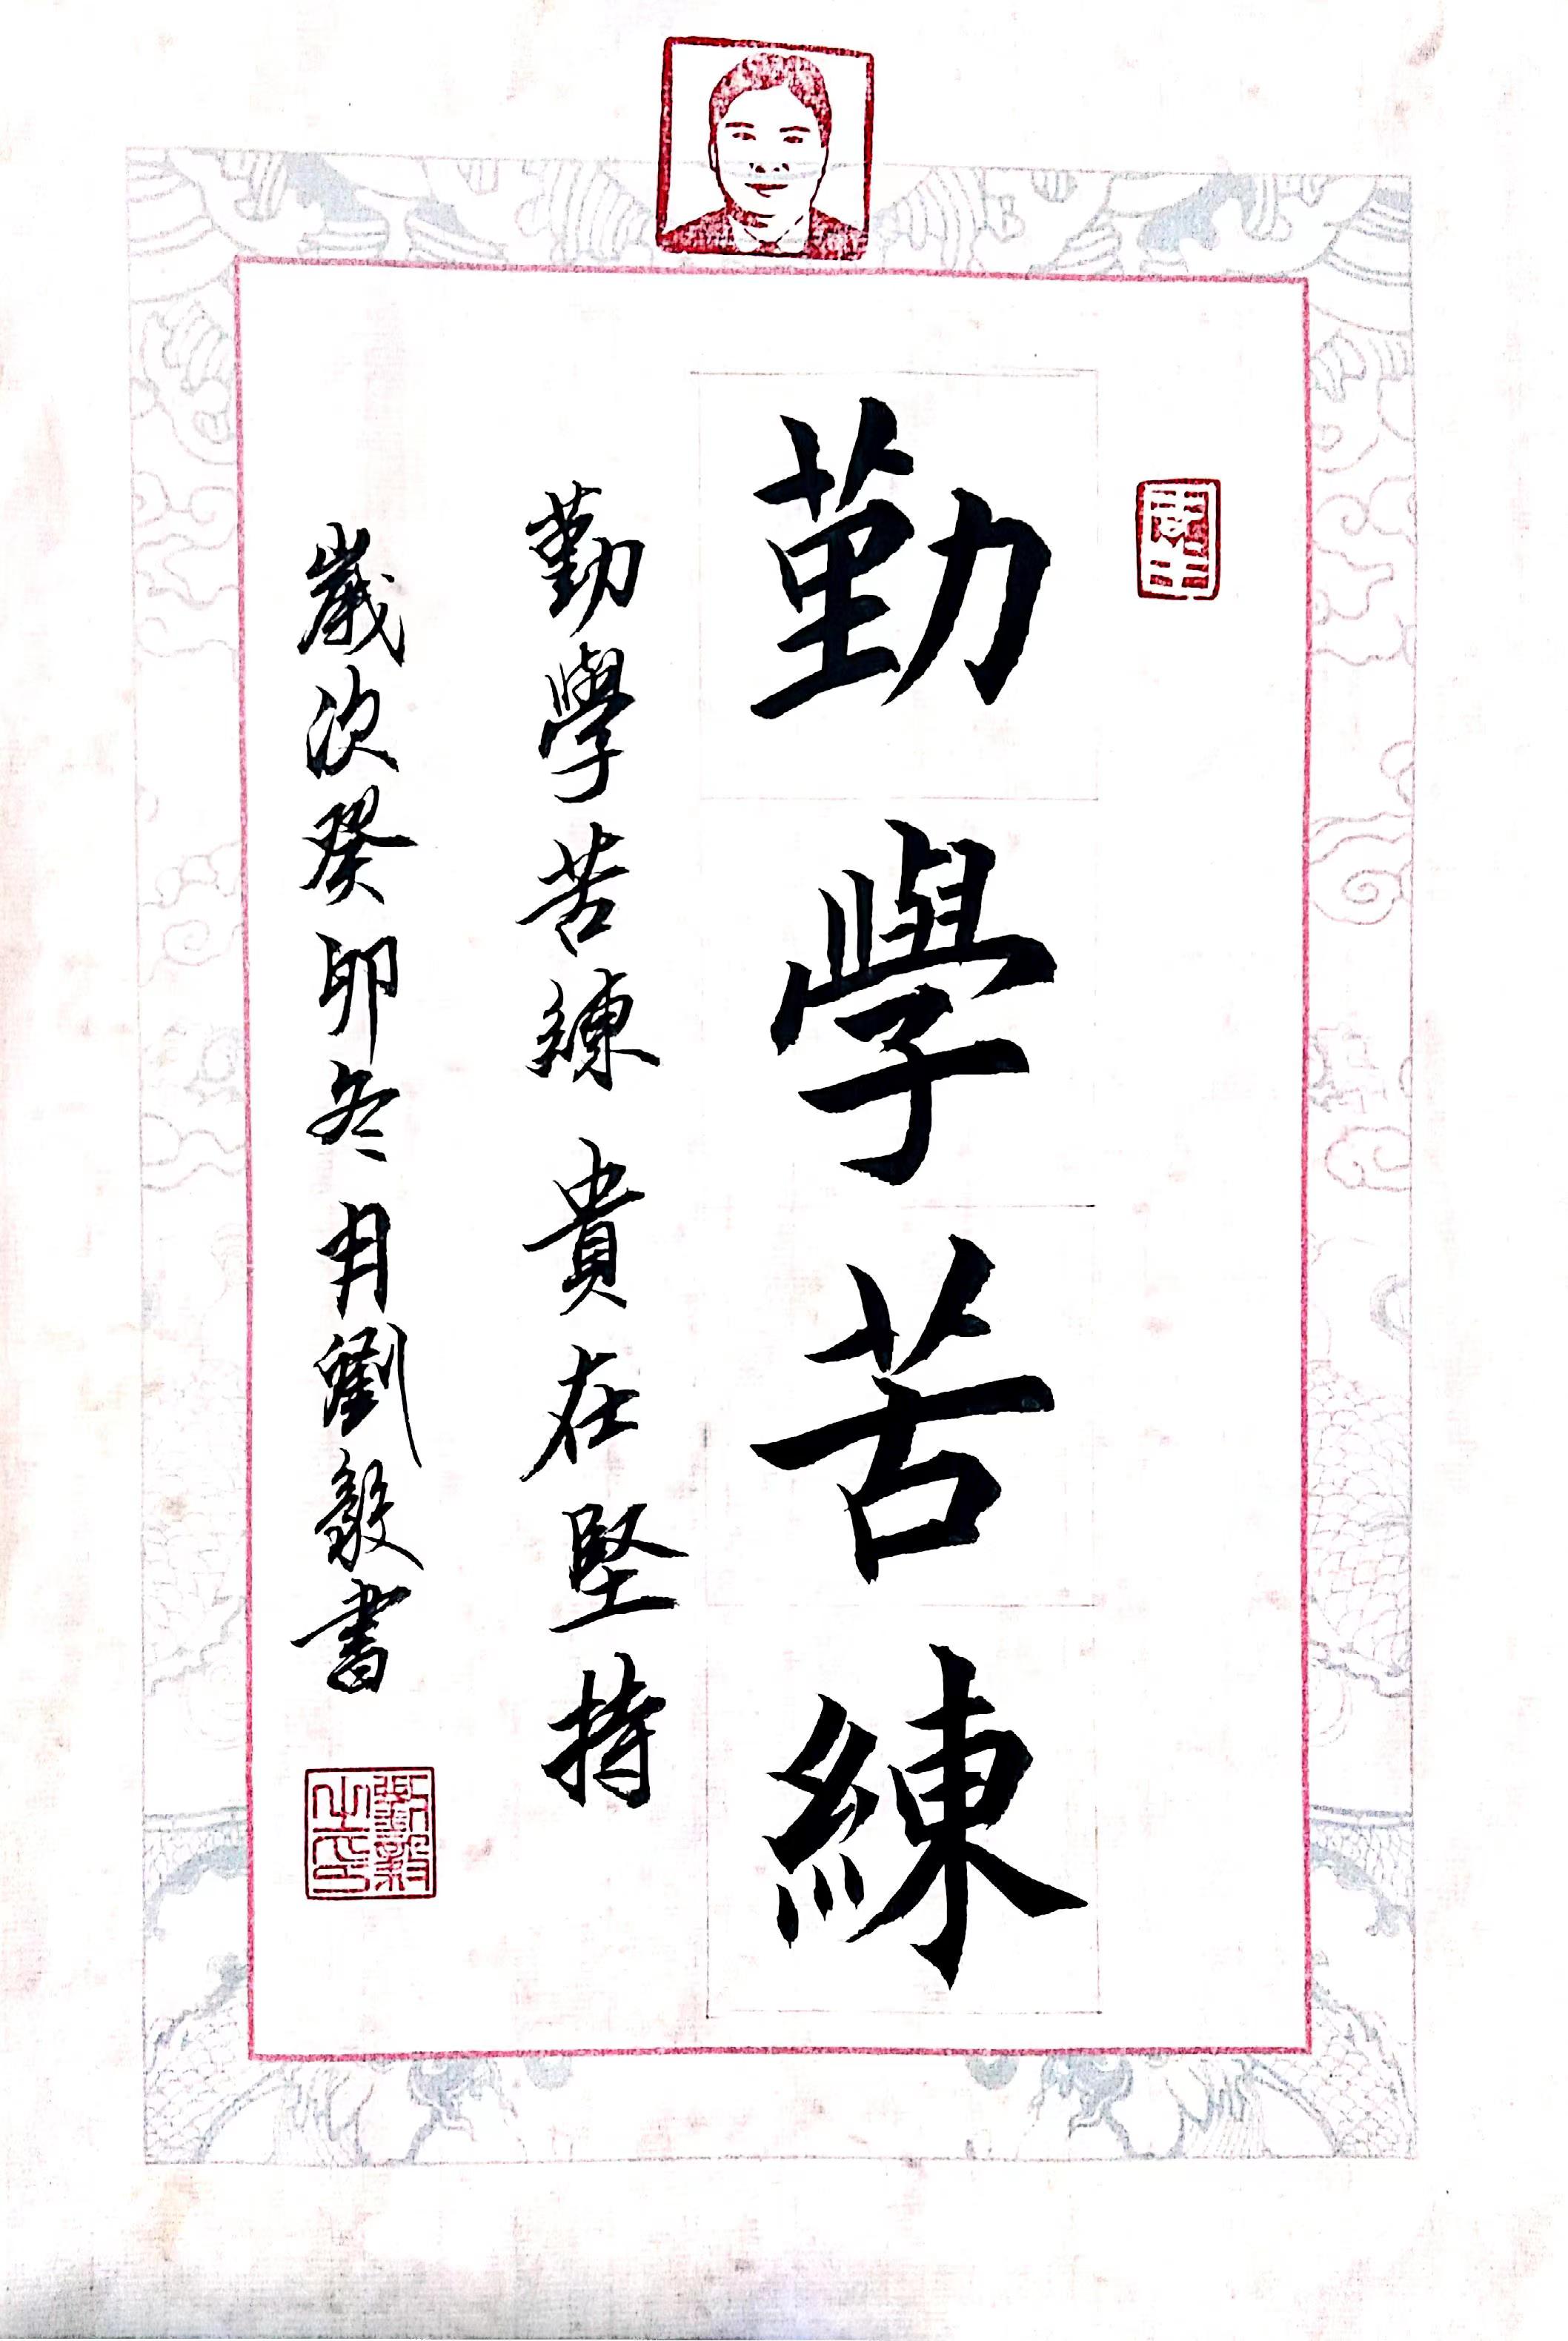 勤學苦練
勤學苦練貴在堅持
歲次癸卯冬月劉毅書
劉毅之印